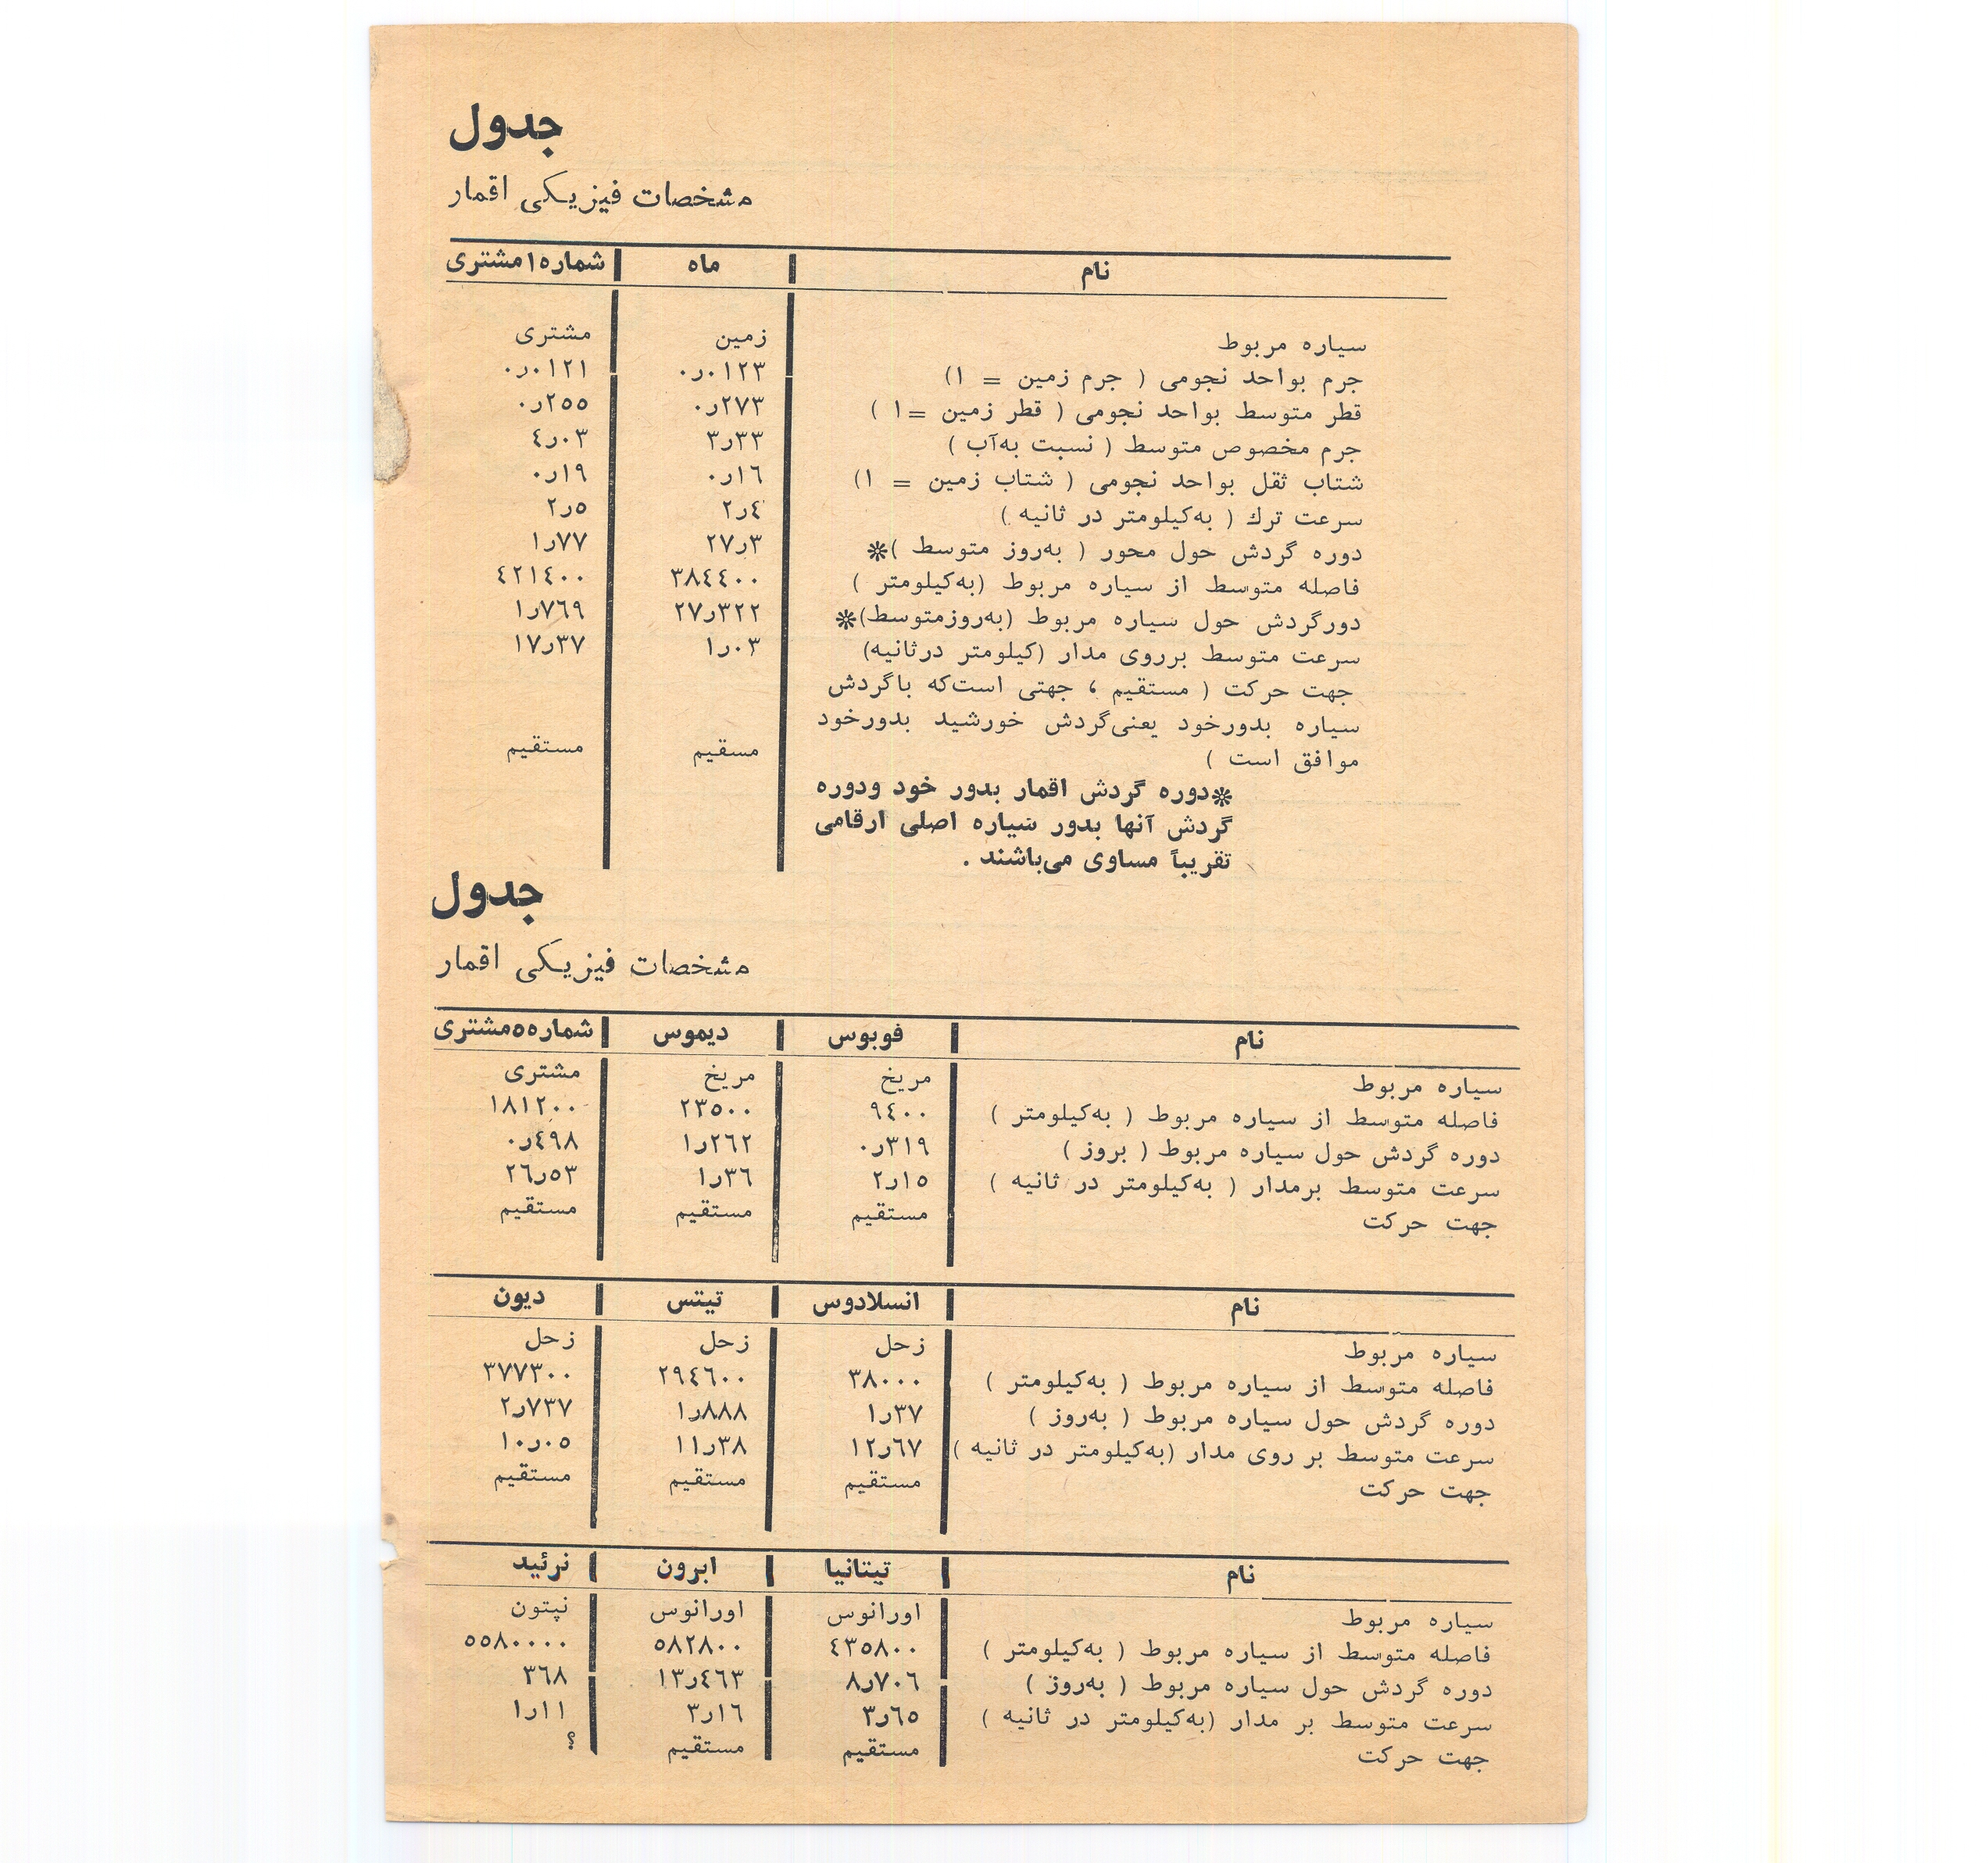 جدول
مشخصات فیزیکی اقمار
نام ماه شماره۱مشتری
سیاره مربوط زمین مشتری
جرم بواحد نجومی ( جرم زمین = ۱) ۰ر۰۱۲۳ ۰ر۰۱۲۱
قطر متوسط بواحد نجومی ( قطر زمین =۱ ) ۰ر۲۷۳ ۰ر۲۵۵
جرم مخصوص متوسط ( نسبت به‌آب ) ۳ر۳۳ ٤ر۰۳
شتاب ثقل بواحد نجومی ( شتاب زمین = ۱) ۰ر۱٦ ۰ر۱۹
سرعت ترك ( به‌کیلومتر در ثانیه ) ۲ر٤ ۲ر۵
دوره گردش حول محور ( به‌روز متوسط )* ۲۷ر۳ ۱ر۷۷
فاصله متوسط از سیاره مربوط (به‌کیلومتر ) ۳۸٤٤۰۰ ٤۲۱٤۰۰
دورگردش حول سیاره مربوط (به‌روزمتوسط)* ۲۷ر۳۲۲ ۱ر۷٦۹
سرعت متوسط برروی مدار (کیلومتر درثانیه) ۱ر۰۳ ۱۷ر۳۷
جهت حرکت ( مستقیم ، جهتی است‌که باگردش
سیاره بدورخود یعنی‌گردش خورشید بدورخود
موافق است ) مسقیم مستقیم
*دوره گردش اقمار بدور خود ودوره
گردش آنها بدور سیاره اصلی ارقامی
تقریباً مساوی می‌باشند .
جدول
مشخصات فیزیکی اقمار
نام فوبوس دیموس شماره۵مشتری
سیاره مربوط مریخ مریخ مشتری
فاصله متوسط از سیاره مربوط ( به‌کیلومتر ) ۹٤۰۰ ۲۳۵۰۰ ۱۸۱۲۰۰
دوره گردش حول سیاره مربوط ( بروز ) ۰ر۳۱۹ ۱ر۲٦۲ ۰ر٤۹۸
سرعت متوسط برمدار ( به‌کیلومتر در ثانیه ) ۲ر۱۵ ۱ر۳٦ ۲٦ر۵۳
جهت حرکت مستقیم مستقیم مستقیم
نام انسلادوس تیتس دیون
سیاره مربوط زحل زحل زحل
فاصله متوسط از سیاره مربوط ( به‌کیلومتر ) ۳۸۰۰۰ ۲۹٤٦۰۰ ۳۷۷۳۰۰
دوره گردش حول سیاره مربوط ( به‌روز ) ۱ر۳۷ ۱ر۸۸۸ ۲ر۷۳۷
سرعت متوسط بر روی مدار (به‌کیلومتر در ثانیه ) ۱۲ر٦۷ ۱۱ر۳۸ ۱۰ر۰۵
جهت حرکت مستقیم مستقیم مستقیم
نام تیتانیا ابرون نرئید
سیاره مربوط اورانوس اورانوس نپتون
فاصله متوسط از سیاره مربوط ( به‌کیلومتر ) ٤۳۵۸۰۰ ۵۸۲۸۰۰ ۵۵۸۰۰۰۰
دوره گردش حول سیاره مربوط ( به‌روز ) ۸ر۷۰٦ ۱۳ر٤٦۳ ۳٦۸
سرعت متوسط بر مدار (به‌کیلومتر در ثانیه ) ۳ر٦۵ ۳ر۱٦ ۱ر۱۱
جهت حرکت مستقیم مستقیم ؟